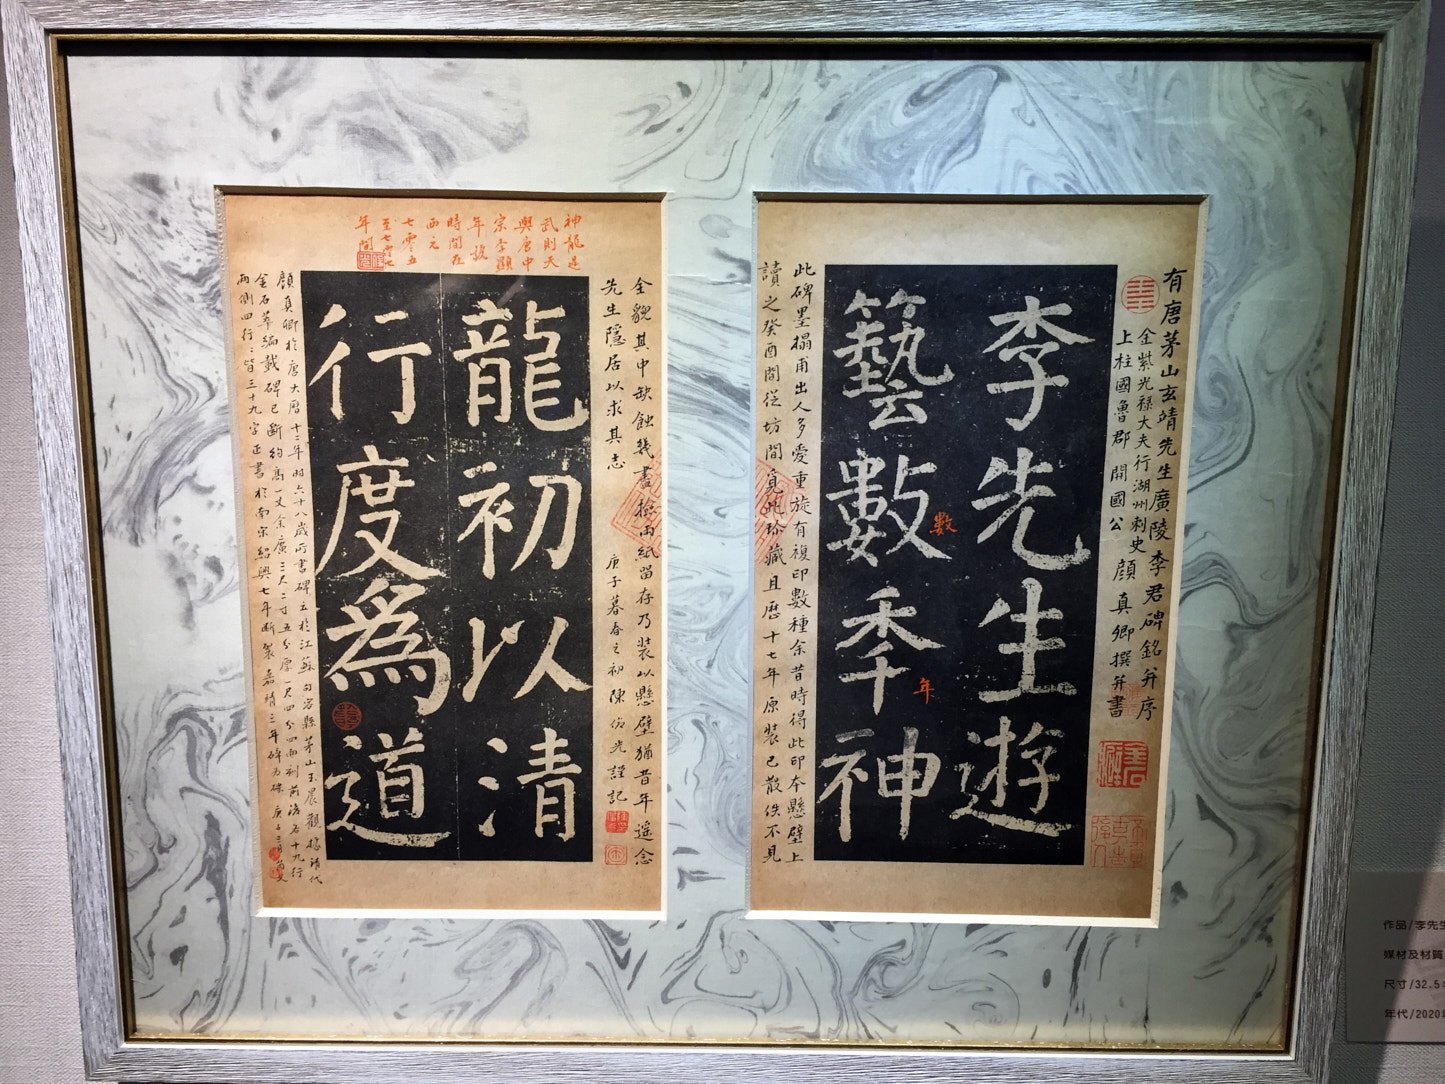 有唐茅山玄靖先生廣陵李君碑銘并序
金紫光祿大夫行湖州刺史
上柱國魯郡開國公顏真卿撰并書
李先生遊
藝數季神
數
年
此碑墨搨甫出人多愛重旋有複印數種余昔時得此印本懸壁上
讀之癸酉間從坊間覓此珍藏且歷十七年原裝已散佚不見
神龍是
武則天
與唐中
宗李顯
年號
時間在
西元
七零五
至七零七
年間
全貌其中缺蝕幾畫撿兩紙留存乃裝以懸壁猶昔年遙念
先生隱居以求其志
庚子暮春之初陳
光謹記
龍初以清
行度為道
顏真卿於唐大曆十二年時六十八歲所書碑立於江蘇句容縣茅山玉晨觀
金石萃編載碑已斷約高一丈余廣三尺二寸五分厚一尺四分四面刻前後各十九行
兩側四行行皆三十九字正書於南宋紹興七年斷裂嘉靖三年碑
作品/李先生
媒材及材質
尺寸/32.5
年代/2020